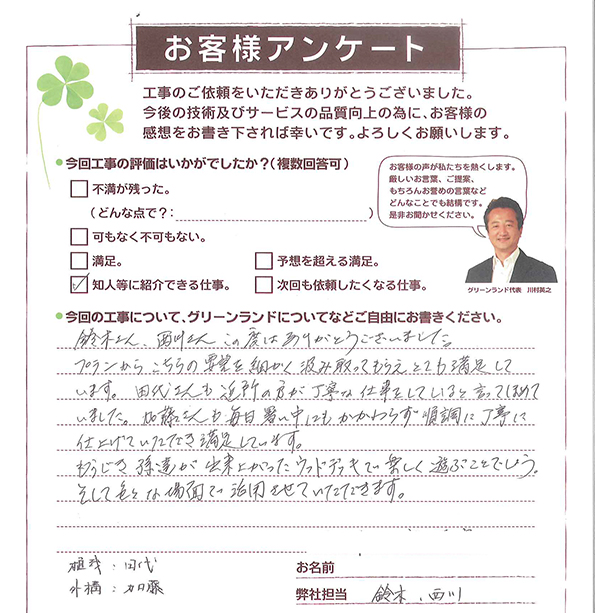 お客様アンケート
工事のご依頼をいただきありがとうございました。
今後の技術及びサービスの品質向上の為に、お客様の
感想をお書き下されば幸いです。よろしくお願いします。
●今回工事の評価はいかがでしたか？（複数回答可）
不満が残った。
（どんな点で？：　）
可もなく不可もない。
満足。
予想を超える満足。
知人等に紹介できる仕事。
次回も依頼したくなる仕事。
お客様の声が私たちを熱くします。
厳しいお言葉、ご提案、
もちろんお誉めの言葉など
どんなことでも結構です。
是非お聞かせください。
グリーンランド代表　川村英之
●今回の工事について、グリーンランドについてなどご自由にお書きください。
鈴木さん、西川さん この度はありがとうございました。
プランから こちらの要望を細かく汲み取ってもらえ とても満足して
います。田代さんも近所の方が丁寧な仕事をしていると言ってほめて
いました。加藤さんも毎日暑い中にもかかわらず順調に丁寧に
仕上げていただき満足しています。
もうじき 孫達が 出来上がったウッドデッキで楽しく遊ぶことでしょう。
そして色々な場面で活用させていただきます。
植栽：田代
外構：加藤
お名前
弊社担当　鈴木、西川